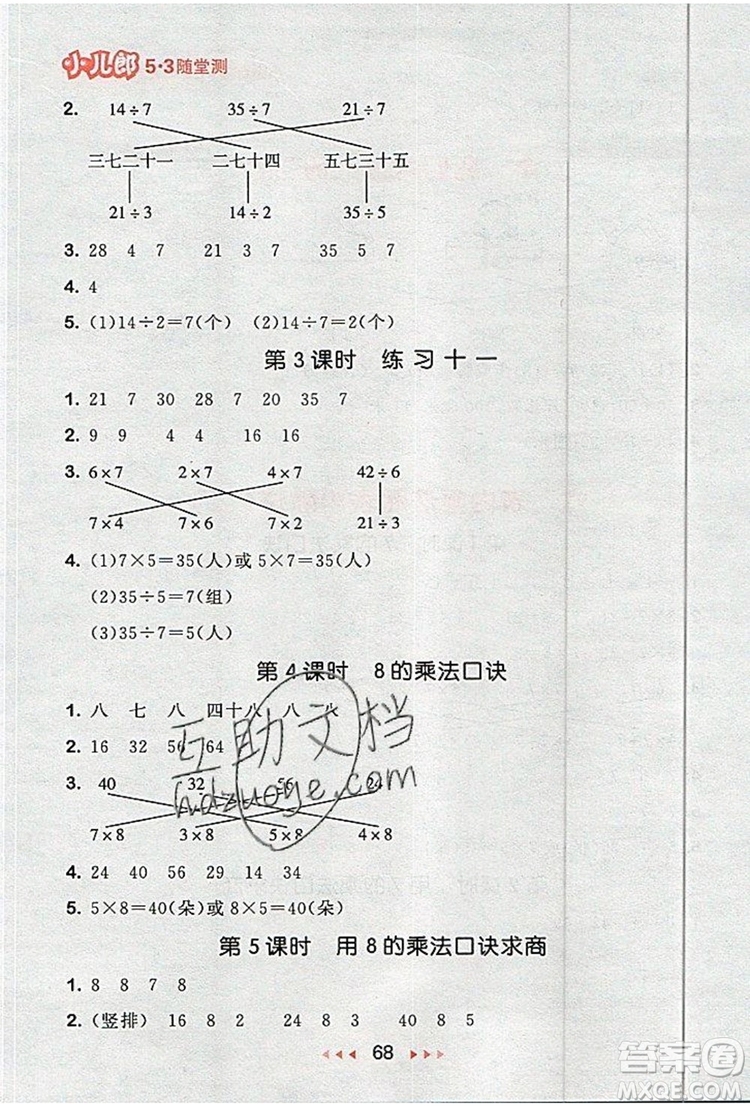 小儿郎 5·3随堂测
2. 14÷7 35÷7 21÷7
三七二十一 二七十四 五七三十五
21÷3 14÷2 35÷5
3. 28 4 7 21 3 7 35 5 7
4. 4
5. (1)14÷2=7(个) (2)14÷7=2(个)
第3课时 练习十一
1. 21 7 30 28 7 20 35 7
2. 9 9 4 4 16 16
3. 6×7 2×7 4×7 42÷6
7×4 7×6 7×2 21÷3
4. (1)7×5=35(人)或 5×7=35(人)
(2)35÷5=7(组)
(3)35÷7=5(人)
第4课时 8的乘法口诀
1. 八 七 八 四十八 八 八
2. 16 32 56 64
3. 40 32 56 24
7×8 3×8 5×8 4×8
4. 24 40 56 29 14 34
5. 5×8=40(朵)或 8×5=40(朵)
第5课时 用8的乘法口诀求商
1. 8 8 7 8
2. (竖排) 16 8 2 24 8 3 40 8 5
68
互助文档
hdzuoye.com
答案圈
MXQE.COM